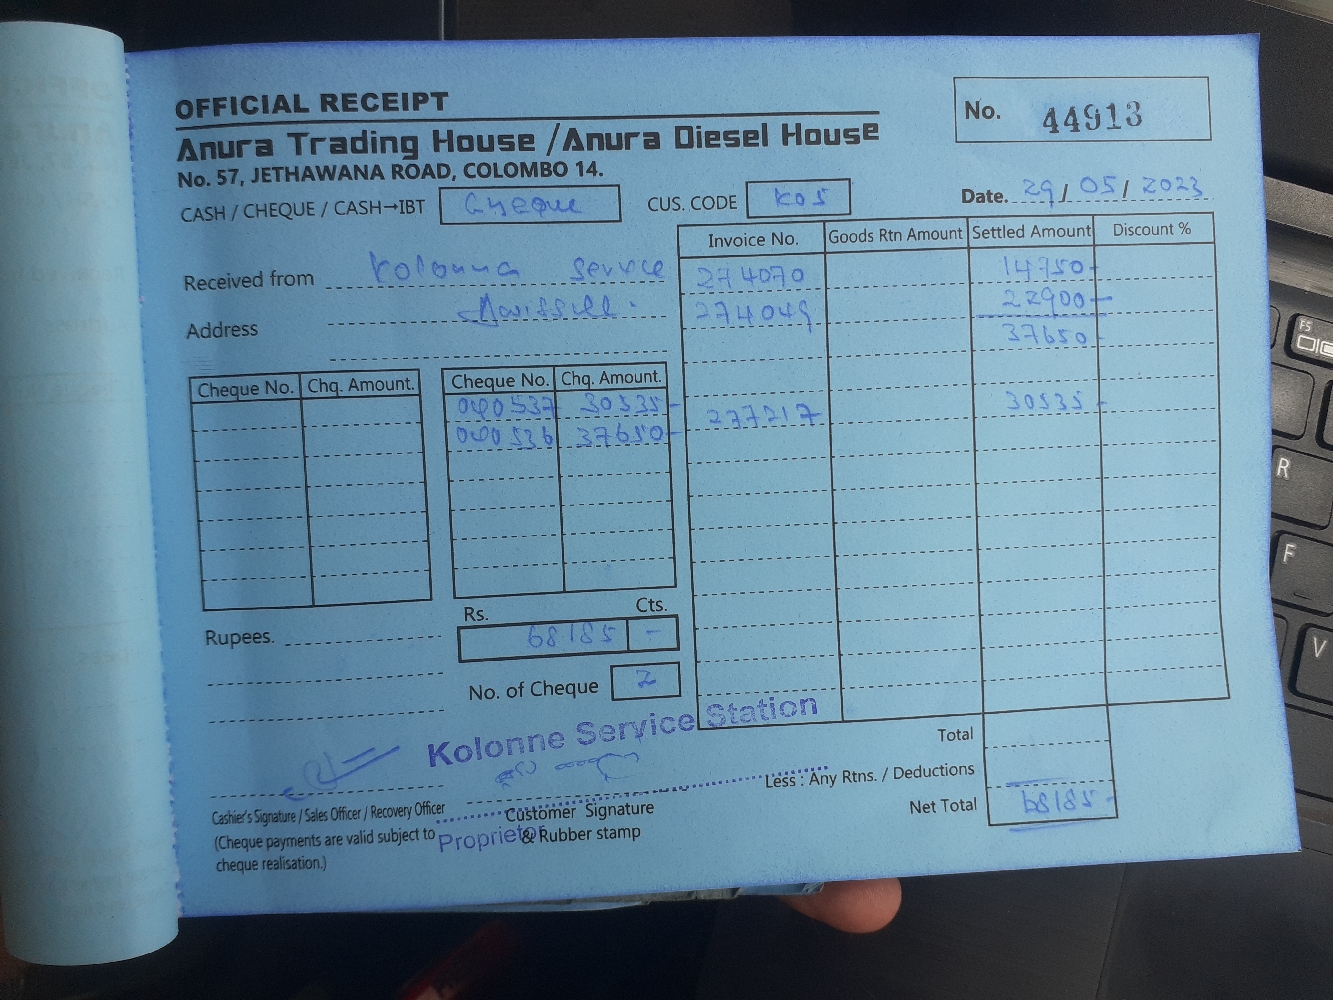 OFFICIAL RECEIPT
No. 44913
Anura Trading House / Anura Diesel House
No. 57, JETHAWANA ROAD, COLOMBO 14.
CASH / CHEQUE / CASH→IBT Cheque CUS. CODE K05 Date. 29/05/2023
Invoice No. Goods Rtn Amount Settled Amount Discount %
Received from Kolonna Service
274070 14750-
Address
274049 22900-
37650
Cheque No. Chq. Amount. Cheque No. Chq. Amount.
000537 30535- 277217 30535-
000536 37650-
Rs. Cts.
Rupees. 68185 -
No. of Cheque 2
Kolonne Service Station
Total
Less : Any Rtns. / Deductions
Net Total 68185-
Cashier's Signature / Sales Officer / Recovery Officer
Customer Signature
& Rubber stamp
Proprietor
(Cheque payments are valid subject to
cheque realisation.)
F5
R
F
V